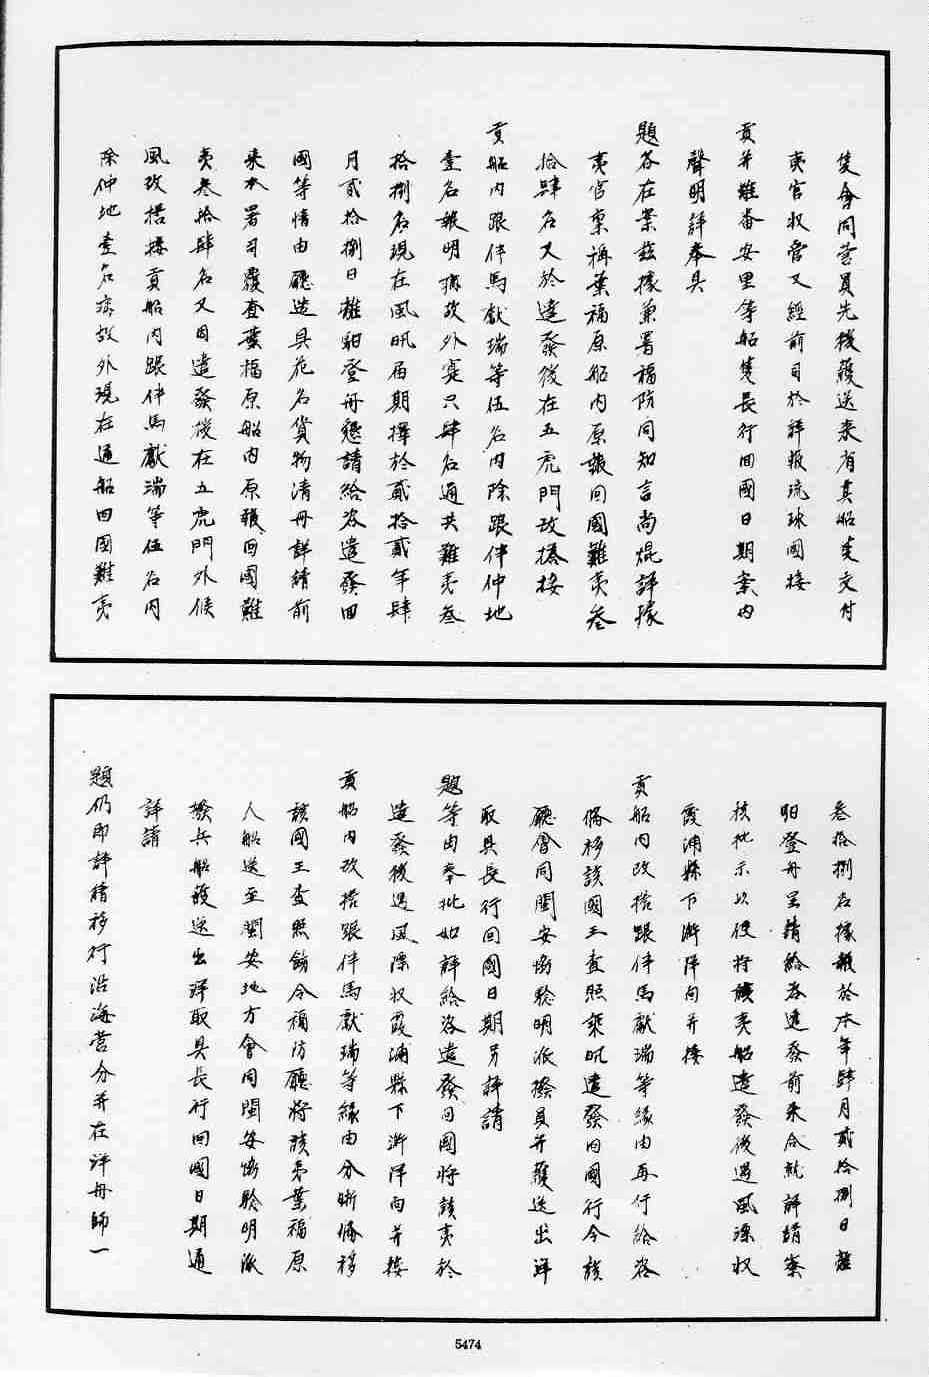 隻會同營員先後護送來省其船隻交付
夷官收管又經前司於詳報琉球國接
貢并難番安里等船隻長行回國日期案內
聲明詳奉具
題咨在案茲據兼署福防同知言尚焜詳據
夷官稟稱葉福原船內原報回國難夷叁
拾肆名又於遣發後在五虎門改搭接
貢船內跟伴馬獻瑞等伍名內除跟伴仲地
壹名報明病故外寔只肆名通共難夷叁
拾捌名現在風汛屆期擇於貳拾貳年肆
月貳拾捌日離馹登舟懇請給咨遣發回
國等情由廳造具花名貨物清冊詳請前
來本署司覆查葉福原船內原報回國難
夷叁拾肆名又因遣發後在五虎門外候
風改搭接貢船內跟伴馬獻瑞等伍名內
除仲地壹名病故外現在通船回國難夷
叁拾捌名據報於本年肆月貳拾捌日離
馹登舟呈請給咨遣發前來合就詳請察
核批示以便將該夷船遣發後遇風漂收
霞浦縣下滸洋向并接
貢船內改搭跟伴馬獻瑞等緣由再行給咨
俻移該國王查照乘汛遣發回國行令該
廳會同閩安協驗明派撥員弁護送出洋
取具長行回國日期另詳請
題等由奉批如詳給咨遣發回國將該夷於
遣發後遇風漂收霞浦縣下滸洋向并接
貢船內改搭跟伴馬獻瑞等緣由分晰俻移
該國王查照飭令福防廳將該夷葉福原
人船送至閩安地方會同閩安協驗明派
撥兵船護送出洋取具長行回國日期通
詳請
題仍即詳請移行沿海營分并在洋舟師一
5474